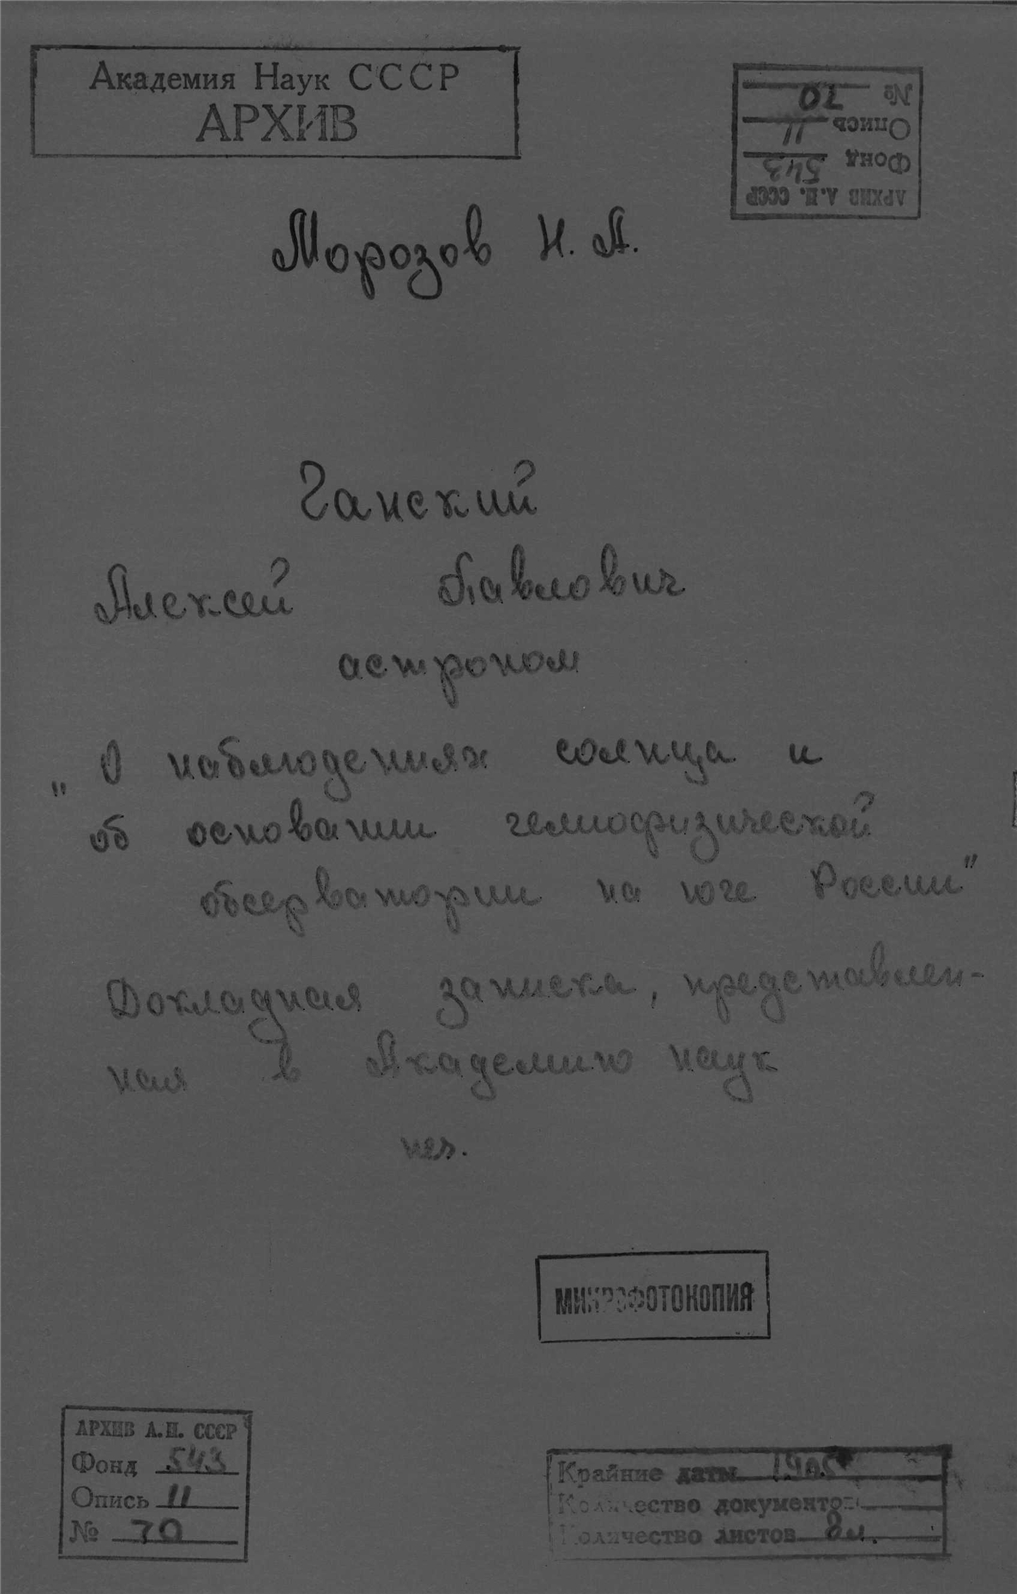 Академия Наук СССР
АРХИВ
АРХИВ А.Н. СССР
Фонд 543
Опись 11
№ 70
Морозов Н. А.
Ганский
Алексей Павлович
астроном
„О наблюдениях солнца и
об основании гелиофизической
обсерватории на юге России"
Докладная записка, представлен-
ная в Академию наук
печ.
МИКРОФОТОКОПИЯ
АРХИВ А.Н. СССР
Фонд 543
Опись 11
№ 70
Крайние даты 1905
Количество документов
Количество листов 8л.